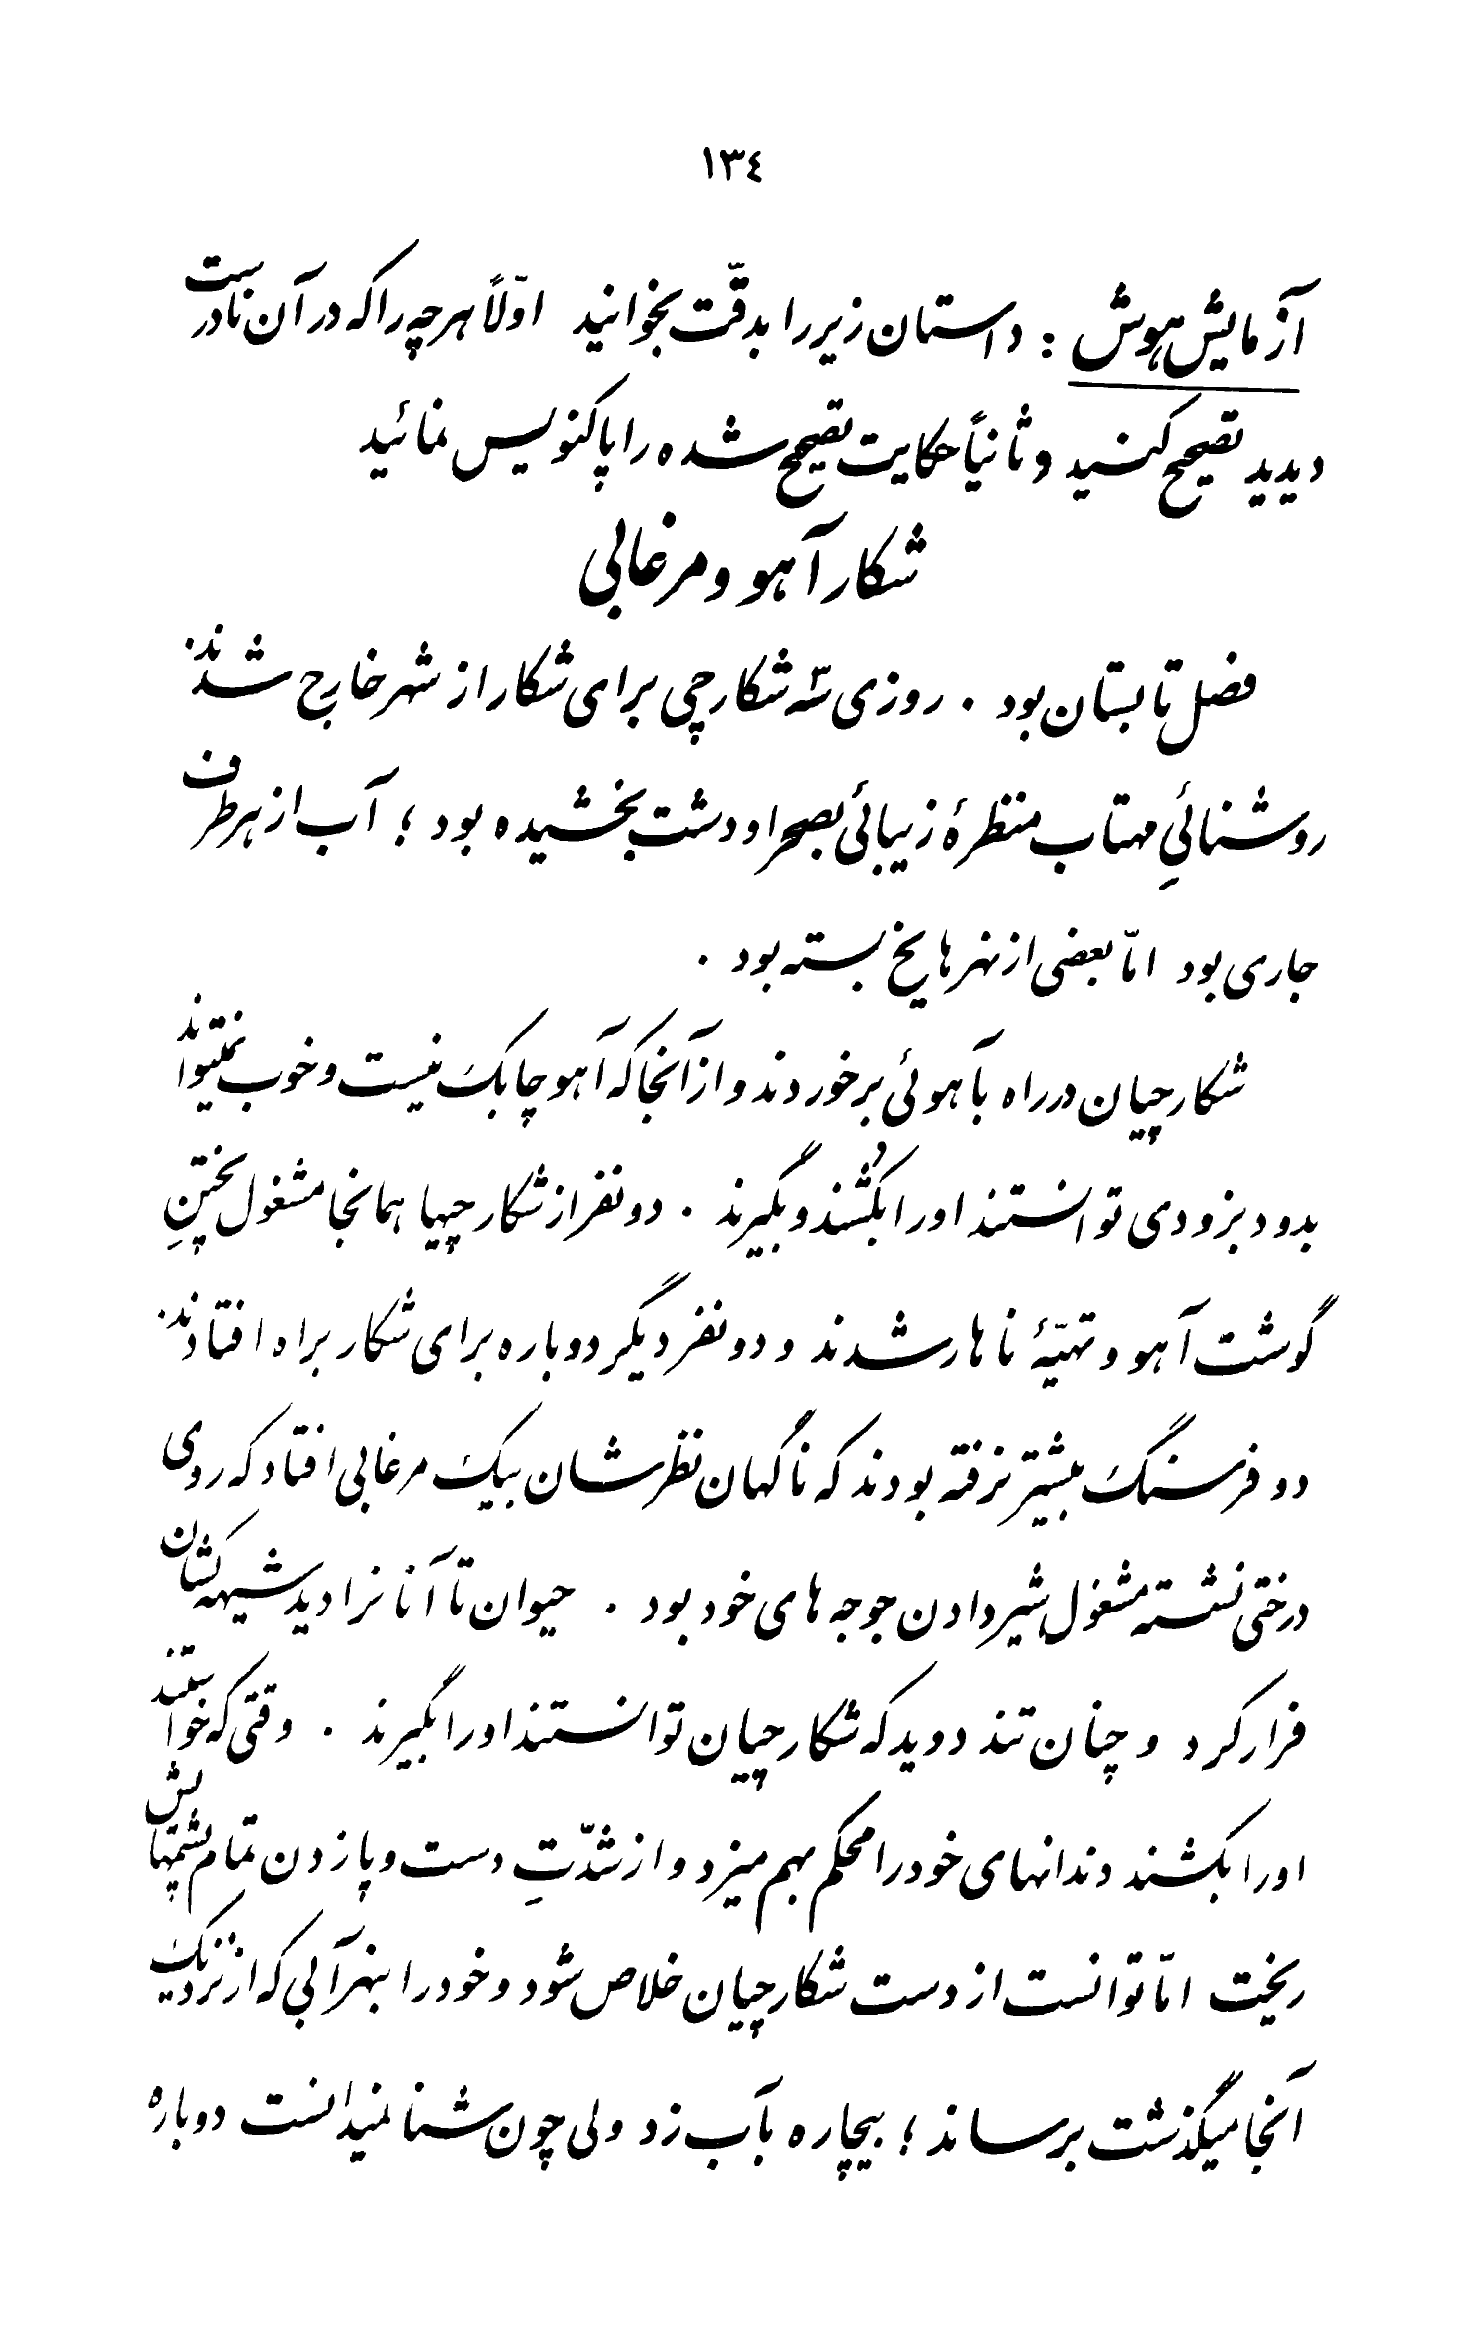 ١٣٤
آزمایش هوش : داستان زیر را بدقّت بخوانید اوّلاً هرچه را که در آن نادرست
دیدید تصحیح کنید و ثانیاً حکایت تصحیح شده را پاکنویس نمائید
شکار آهو و مرغابی
فصل تابستان بود . روزی سه شکارچی برای شکار از شهر خارج شدند .
روشنائیِ مهتاب منظرهٔ زیبائی بصحرا و دشت بخشیده بود ؛ آب از هر طرف
جاری بود امّا بعضی از نهرها یخ بسته بود .
شکارچیان در راه بآهوئی برخوردند و از آنجا که آهو چابک نیست و خوب نمیتواند
بدود بزودی توانستند او را بکُشند و بگیرند . دو نفر از شکارچیها همانجا مشغول پختنِ
گوشت آهو و تهیّهٔ ناهار شدند و دو نفر دیگر دوباره برای شکار براه افتادند .
دو فرسنگ بیشتر نرفته بودند که ناگهان نظرشان بیک مرغابی افتاد که روی
درختی نشسته مشغول شیر دادن جوجه های خود بود . حیوان تا آنانرا دید شیهه کشان
فرار کرد و چنان تند دوید که شکارچیان توانستند او را بگیرند . وقتی که خواستند
او را بکشند دندانهای خود را محکم بهم میزد و از شدّتِ دست و پا زدن تمام پشمهایش
ریخت امّا توانست از دست شکارچیان خلاص شود و خود را بنهر آبی که از نزدیک
آنجا میگذشت برساند ؛ بیچاره بآب زد ولی چون شنا نمیدانست دوباره